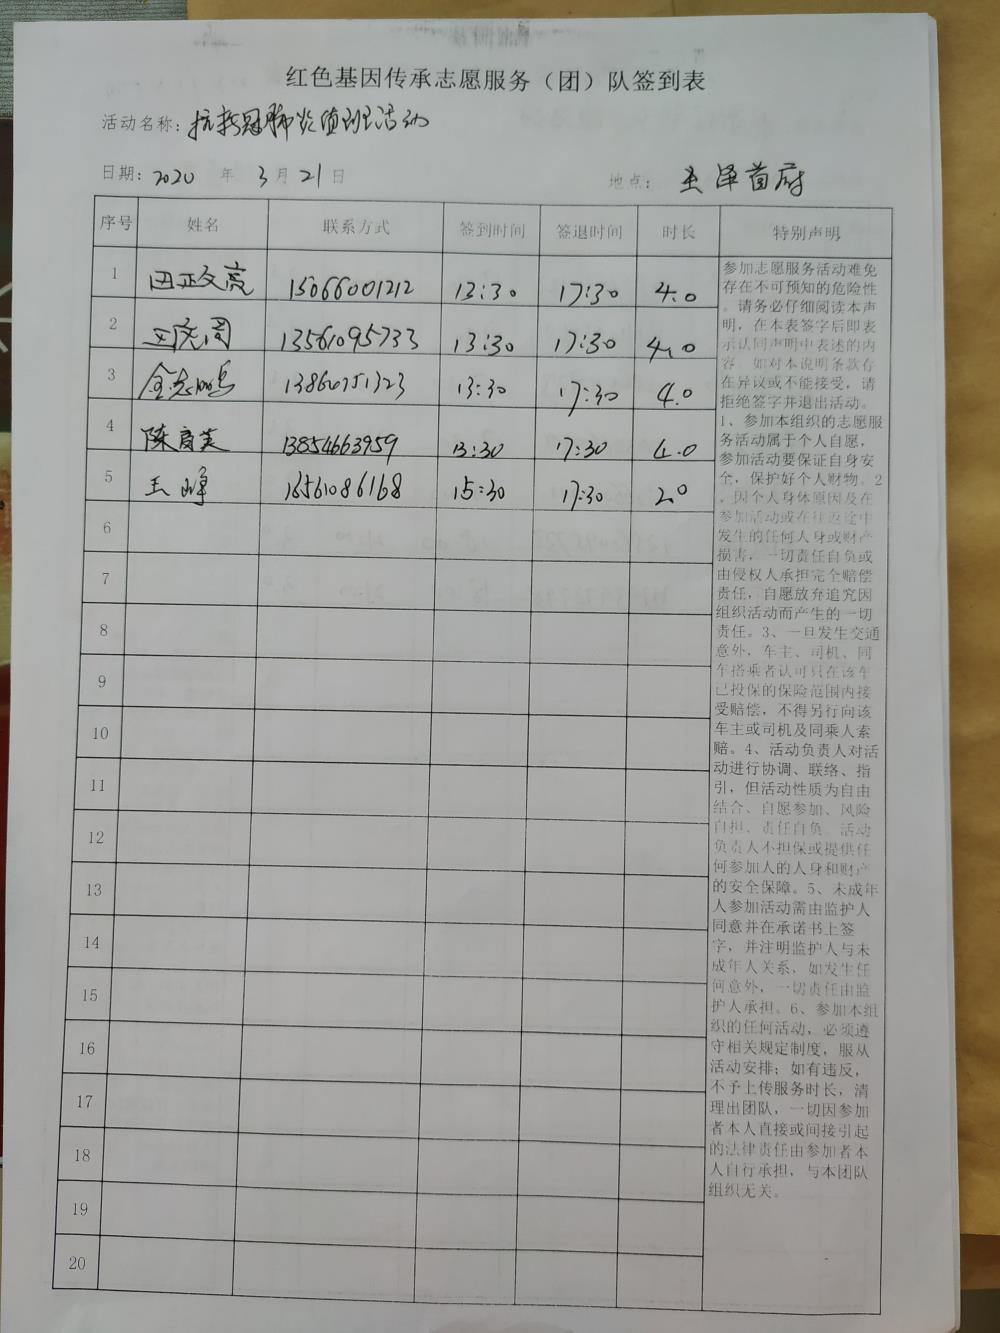 红色基因传承志愿服务（团）队签到表
活动名称：抗新冠肺炎值班活动
日期：2020 年 3 月 21 日 地点：圣泽首府
序号 姓名 联系方式 签到时间 签退时间 时长 特别声明
1 15066001212 13:30 17:30 4.0
2 13561095733 13:30 17:30 4.0
3 13860751323 13:30 17:30 4.0
4 陈育英 13854663959 13:30 17:30 4.0
5 王峰 18561086168 15:30 17:30 2.0
6
7
8
9
10
11
12
13
14
15
16
17
18
19
20
参加志愿服务活动难免
存在不可预知的危险性
。请务必仔细阅读本声
明，在本表签字后即表
示认同声明中表述的内
容。如对本说明条款存
在异议或不能接受，请
拒绝签字并退出活动。
1、参加本组织的志愿服
务活动属于个人自愿，
参加活动要保证自身安
全，保护好个人财物。2
、因个人身体原因及在
参加活动或在往返途中
发生的任何人身或财产
损害，一切责任自负或
由侵权人承担完全赔偿
责任，自愿放弃追究因
组织活动而产生的一切
责任。3、一旦发生交通
意外，车主、司机、同
车搭乘者认可只在该车
已投保的保险范围内接
受赔偿，不得另行向该
车主或司机及同乘人索
赔。4、活动负责人对活
动进行协调、联络、指
引，但活动性质为自由
结合、自愿参加、风险
自担、责任自负。活动
负责人不担保或提供任
何参加人的人身和财产
的安全保障。5、未成年
人参加活动需由监护人
同意并在承诺书上签
字，并注明监护人与未
成年人关系，如发生任
何意外，一切责任由监
护人承担。6、参加本组
织的任何活动，必须遵
守相关规定制度，服从
活动安排；如有违反，
不予上传服务时长，清
理出团队，一切因参加
者本人直接或间接引起
的法律责任由参加者本
人自行承担，与本团队
组织无关。